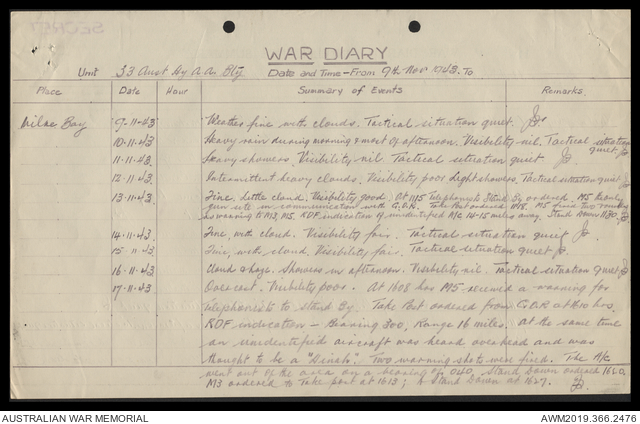 SECRET
WAR DIARY
Unit 33 Aust Hy A.A. Bty Date and Time - From 9th Nov 1943. To
Place Date Hour Summary of Events Remarks.
Milne Bay 9-11-43 Weather fine with clouds. Tactical situation quiet.
10-11-43 Heavy rain during morning & most of afternoon. Visibility nil. Tactical situation quiet
11-11-43 Heavy showers. Visibility nil. Tactical situation quiet
12-11-43 Intermittent heavy clouds. Visibility poor. Light showers. Tactical situation quiet
13-11-43 Fine, little cloud. Visibility good. At 1115 Telephonists Stand By ordered. M5
in communication with G.O.R. Take Post ordered M5 fired two rounds
as warning to M3, M5. RDF indication of unidentified A/c 14-15 miles away. Stand Down 1130.
14-11-43 Fine, with cloud. Visibility fair. Tactical situation quiet
15-11-43 Fine, with cloud, Visibility fair. Tactical situation quiet
16-11-43 Cloud & haze. Showers in afternoon. Visibility nil. Tactical situation quiet
17-11-43 Overcast. Visibility poor. At 1608 hrs M5 received a warning for
Telephonists to Stand By. Take Post ordered from G.O.R at 1610 hrs.
RDF indication - Bearing 300, Range 16 miles. At the same time
an unidentified aircraft was heard overhead and was
thought to be a "Dinah". Two warning shots were fired. The A/c
went out of the area on a bearing of 040. Stand Down ordered 1620.
M3 ordered to Take post at 1613; & Stand Down at 1627.
AUSTRALIAN WAR MEMORIAL AWM2019.366.2476